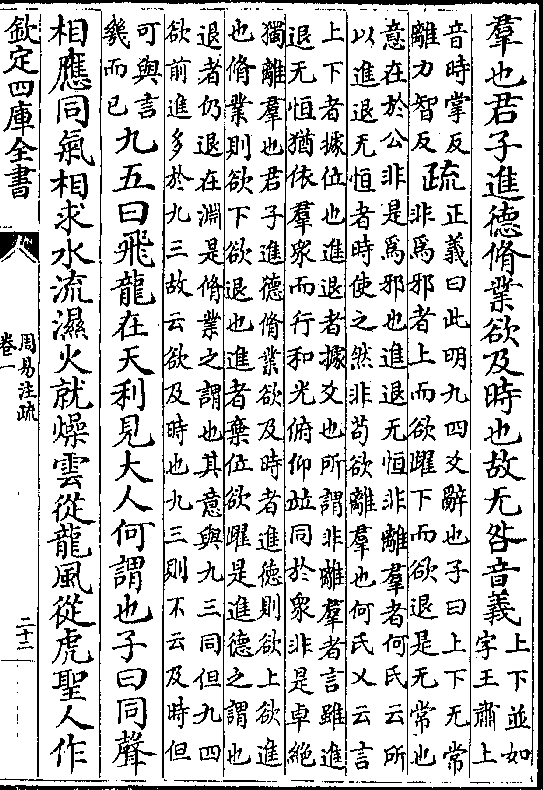 羣也君子進德脩業欲及時也故无咎音義上下並如
字王肅上
音時掌反
離力智反疏正義曰此明九四爻辭也子曰上下无常
非爲邪者上而欲躍下而欲退是无常也
意在於公非是爲邪也進退无恒非離羣者何氏云所
以進退无恒者時使之然非苟欲離羣也何氏又云言
上下者據位也進退者據爻也所謂非離羣者言雖進
退无恒猶依羣衆而行和光俯仰並同於衆非是卓絶
獨離羣也君子進德脩業欲及時者進德則欲上欲進
也脩業則欲下欲退也進者棄位欲躍是進德之謂也
退者仍退在淵是脩業之謂也其意與九三同但九四
欲前進多於九三故云欲及時也九三則不云及時但
可與言
幾而已九五曰飛龍在天利見大人何謂也子曰同聲
相應同氣相求水流濕火就燥雲從龍風從虎聖人作
欽定四庫全書
周易注疏
卷一
二十二